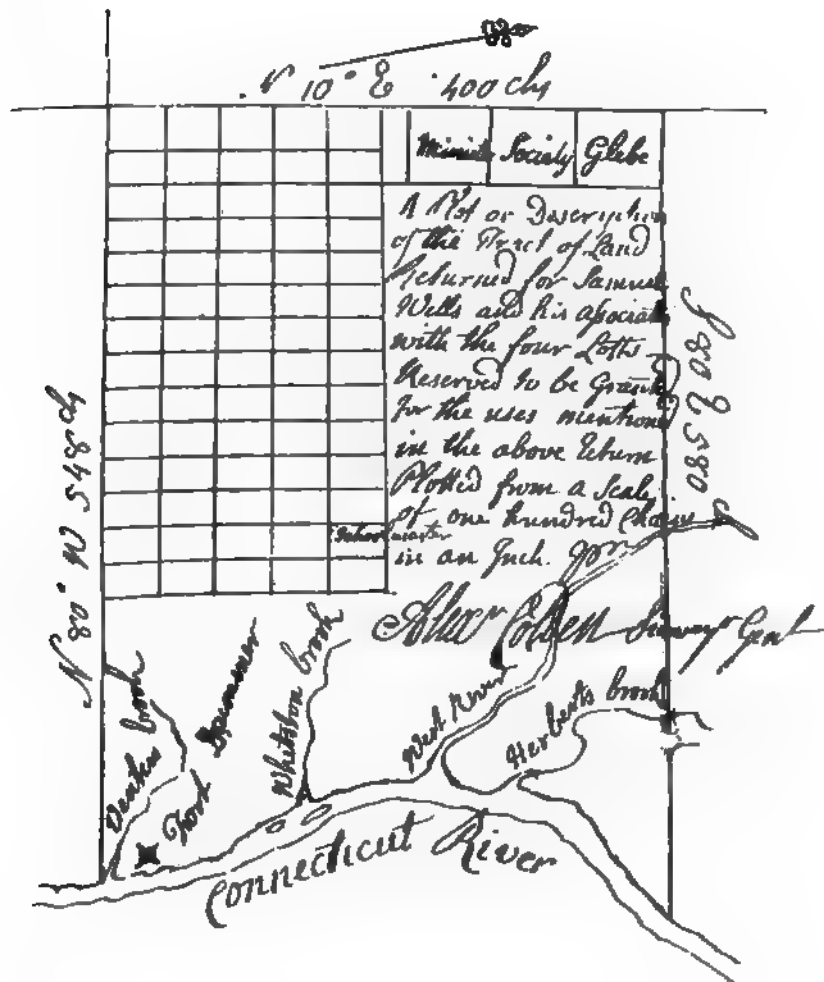 N 10° E 400 chs
Minists Society Glebe
A Plot or Description
of the Tract of Land
Returned for Samuel
Wells and his associats
with the four Lotts
Reserved to be Granted
for the uses mentioned
in the above Return
Plotted from a Scale
of one hundred Chains
in an Inch. pr
School master
Alexr Colden Survayr Genl
N 80° W 548 ch
S 80 E 580 ch
brook
Fort Dummer
Whetston brook
West River
Herberts brook
Connecticut River